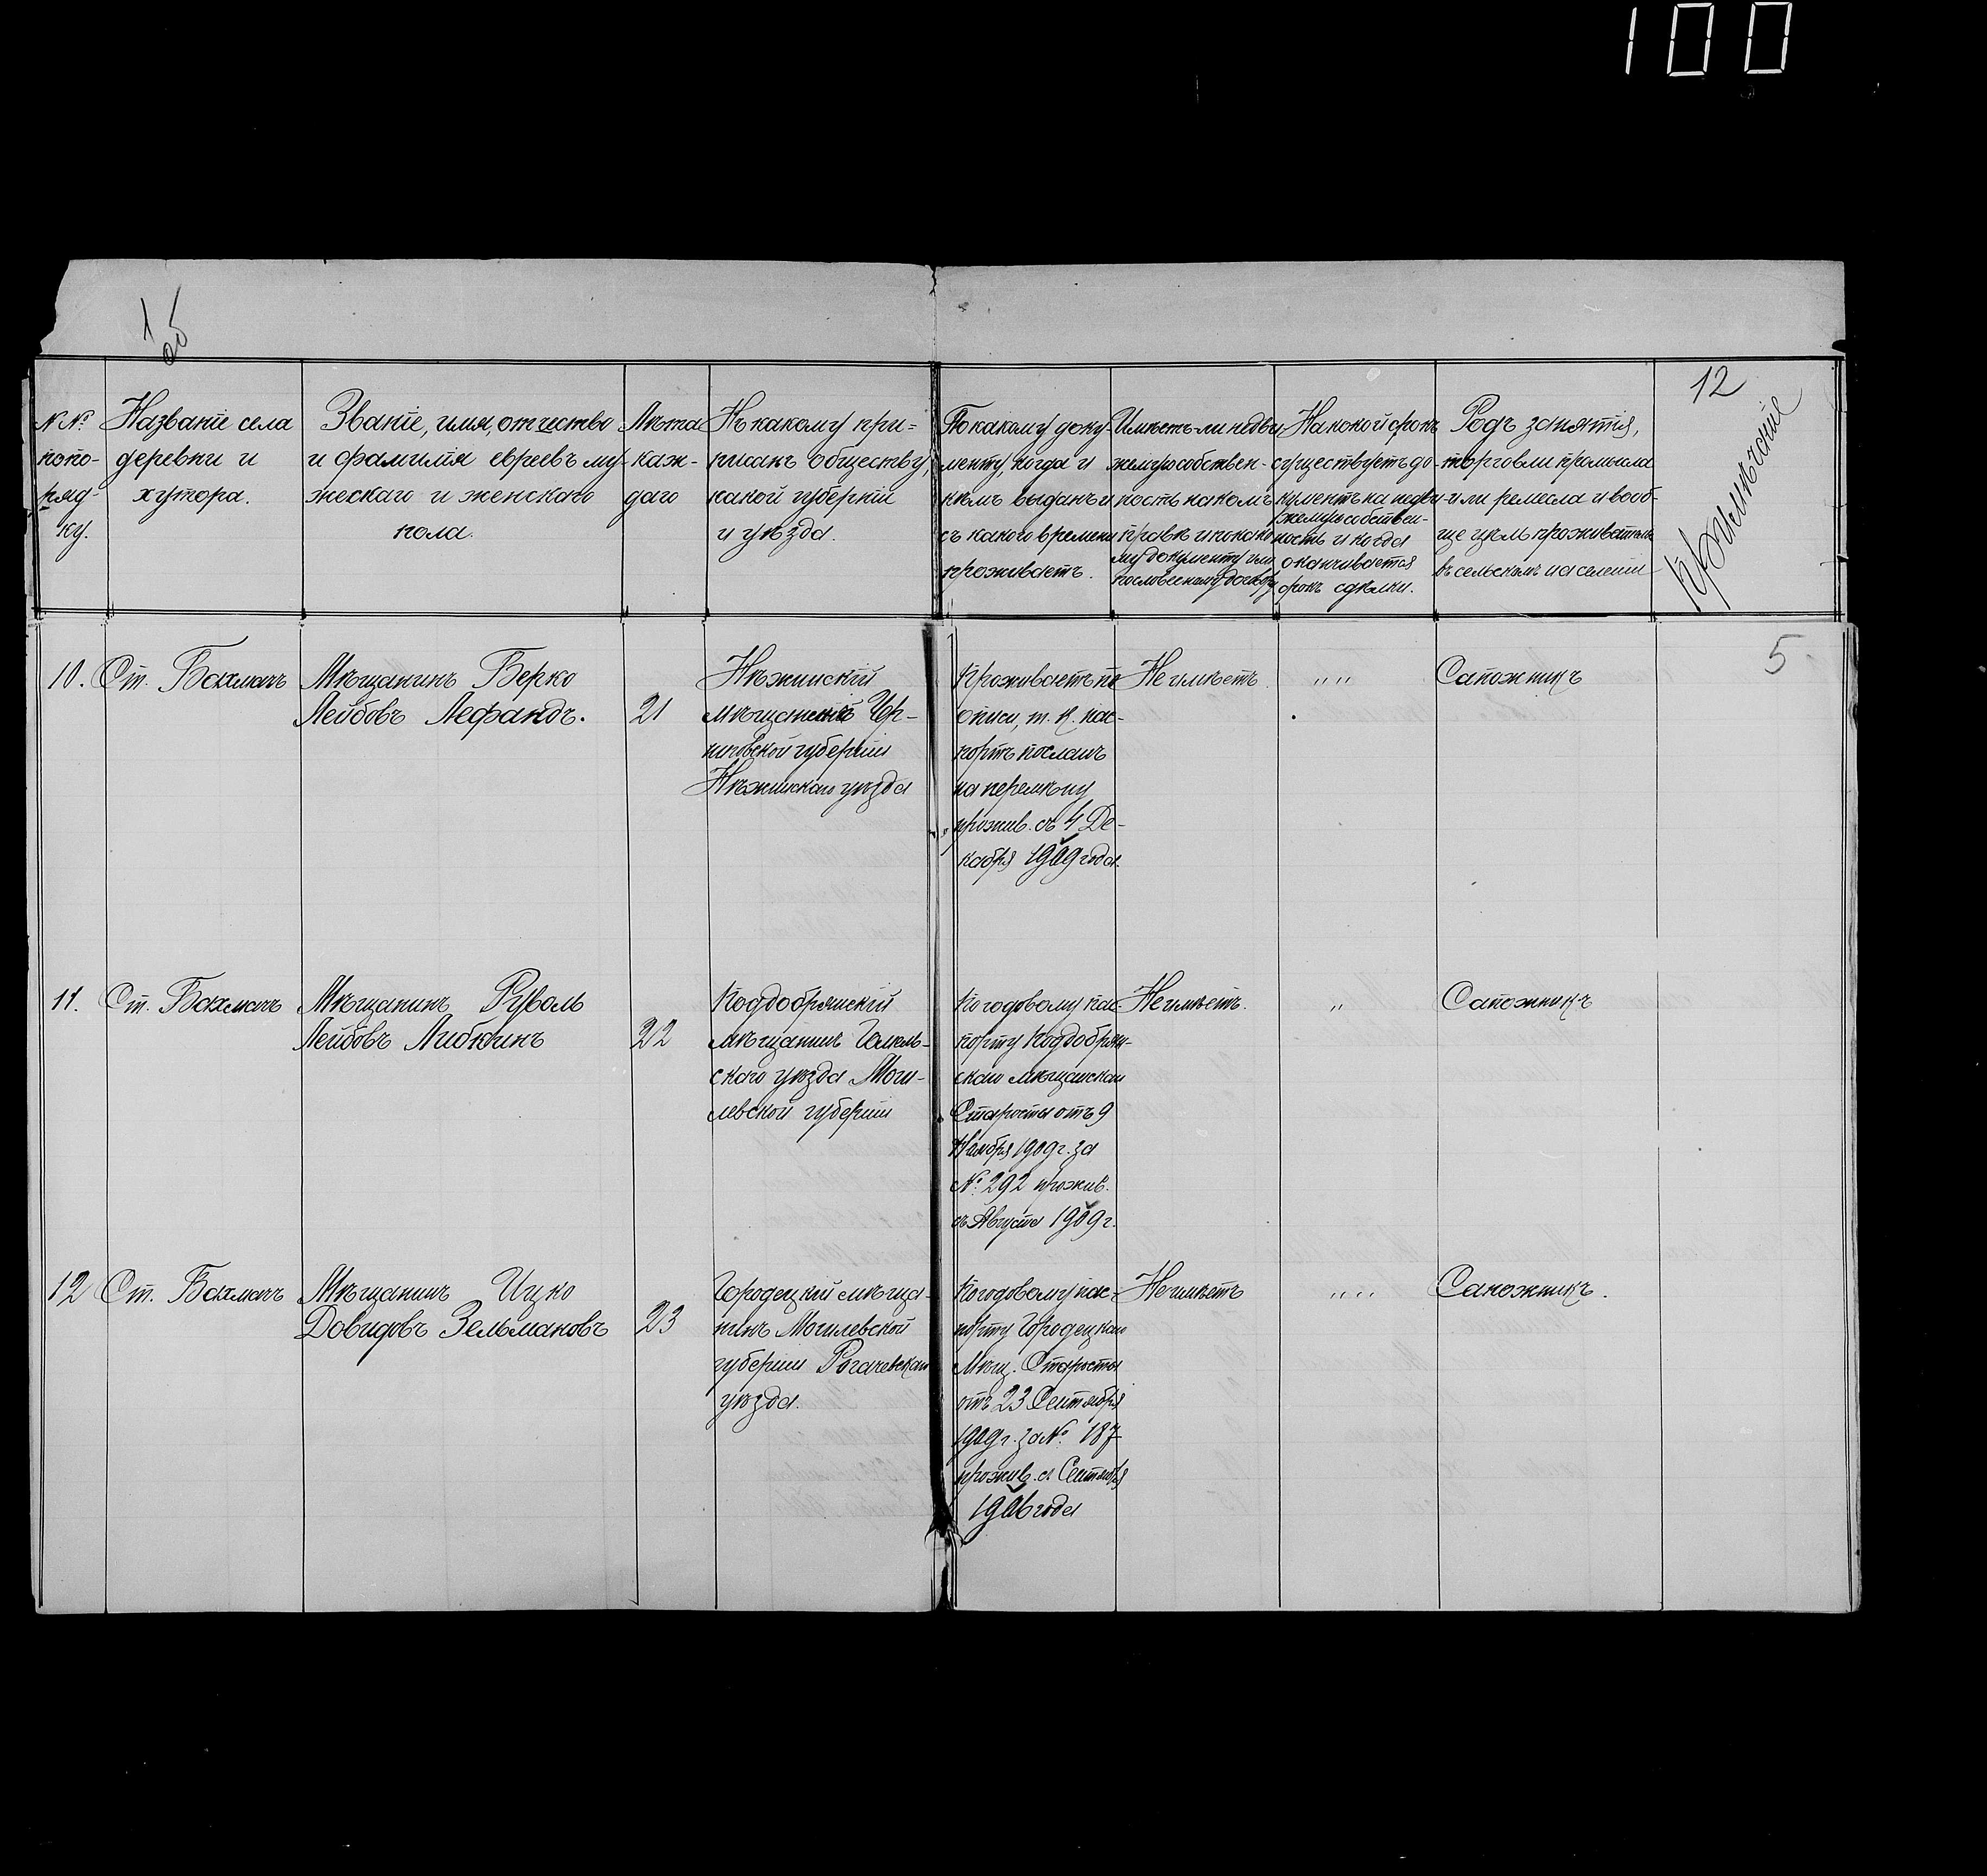 100
1
об
12
№№
по по-
ряд-
ку.
Названіе села
деревни и
хутора.
Званіе, имя, отчество
и фамилія евреевъ му-
жескаго и женскаго
пола.
Лѣта
каж-
даго
Къ какому при-
писанъ обществу,
какой губерніи
и уѣзда.
По какому доку-
менту, когда и
кѣмъ выданъ и
съ какого времени
проживаетъ.
Имѣетъ-ли недви-
жимую собствен-
ность на какомъ
правѣ и по како-
му документу или
словесному договору
На какой срокъ
существуетъ до-
кументъ на недви-
жимую собствен-
ность и когда
оканчивается
срокъ сдѣлки.
Родъ занятія,
торговли промысла
или ремесла и вооб-
ще цѣль проживательства
въ сельскомъ населеніи
Примѣчаніе
5
10.
Ст. Бахмачъ
Мѣщанинъ Берко
Лейбовъ Лефандъ.
21
Нѣжинскій
мѣщанинъ Чер-
ниговской губерніи
Нѣжинскаго уѣзда
Проживаетъ по
описи, т. к. пас-
портъ посланъ
на перемѣну
прожив. съ 4 Де-
кабря 1909 года.
Не имѣетъ.
„ „
Сапожникъ
11.
Ст. Бахмачъ
Мѣщанинъ Рувель
Лейбовъ Либкинъ
22
Поддобрянскій
мѣщанинъ Гомель-
скаго уѣзда Моги-
левской губерніи
По годовому пас-
порту Поддобрян-
скаго мѣщанскаго
Старосты отъ 9
Ноября 1909 г. за
№ 292 прожив.
съ Августа 1909 г.
Не имѣетъ.
„
Сапожникъ
12
Ст. Бахмачъ
Мѣщанинъ Ицко
Довидовъ Зельмановъ
23
Городецкій мѣща-
нинъ Могилевской
губерніи Рогачевскаго
уѣзда.
По годовому пас-
порту Городецкаго
Мѣщ. Старосты
отъ 23 Сентября
1909 г. за № 187
прожив. съ Сентября
1906 года
Не имѣетъ
„ „
Сапожникъ.